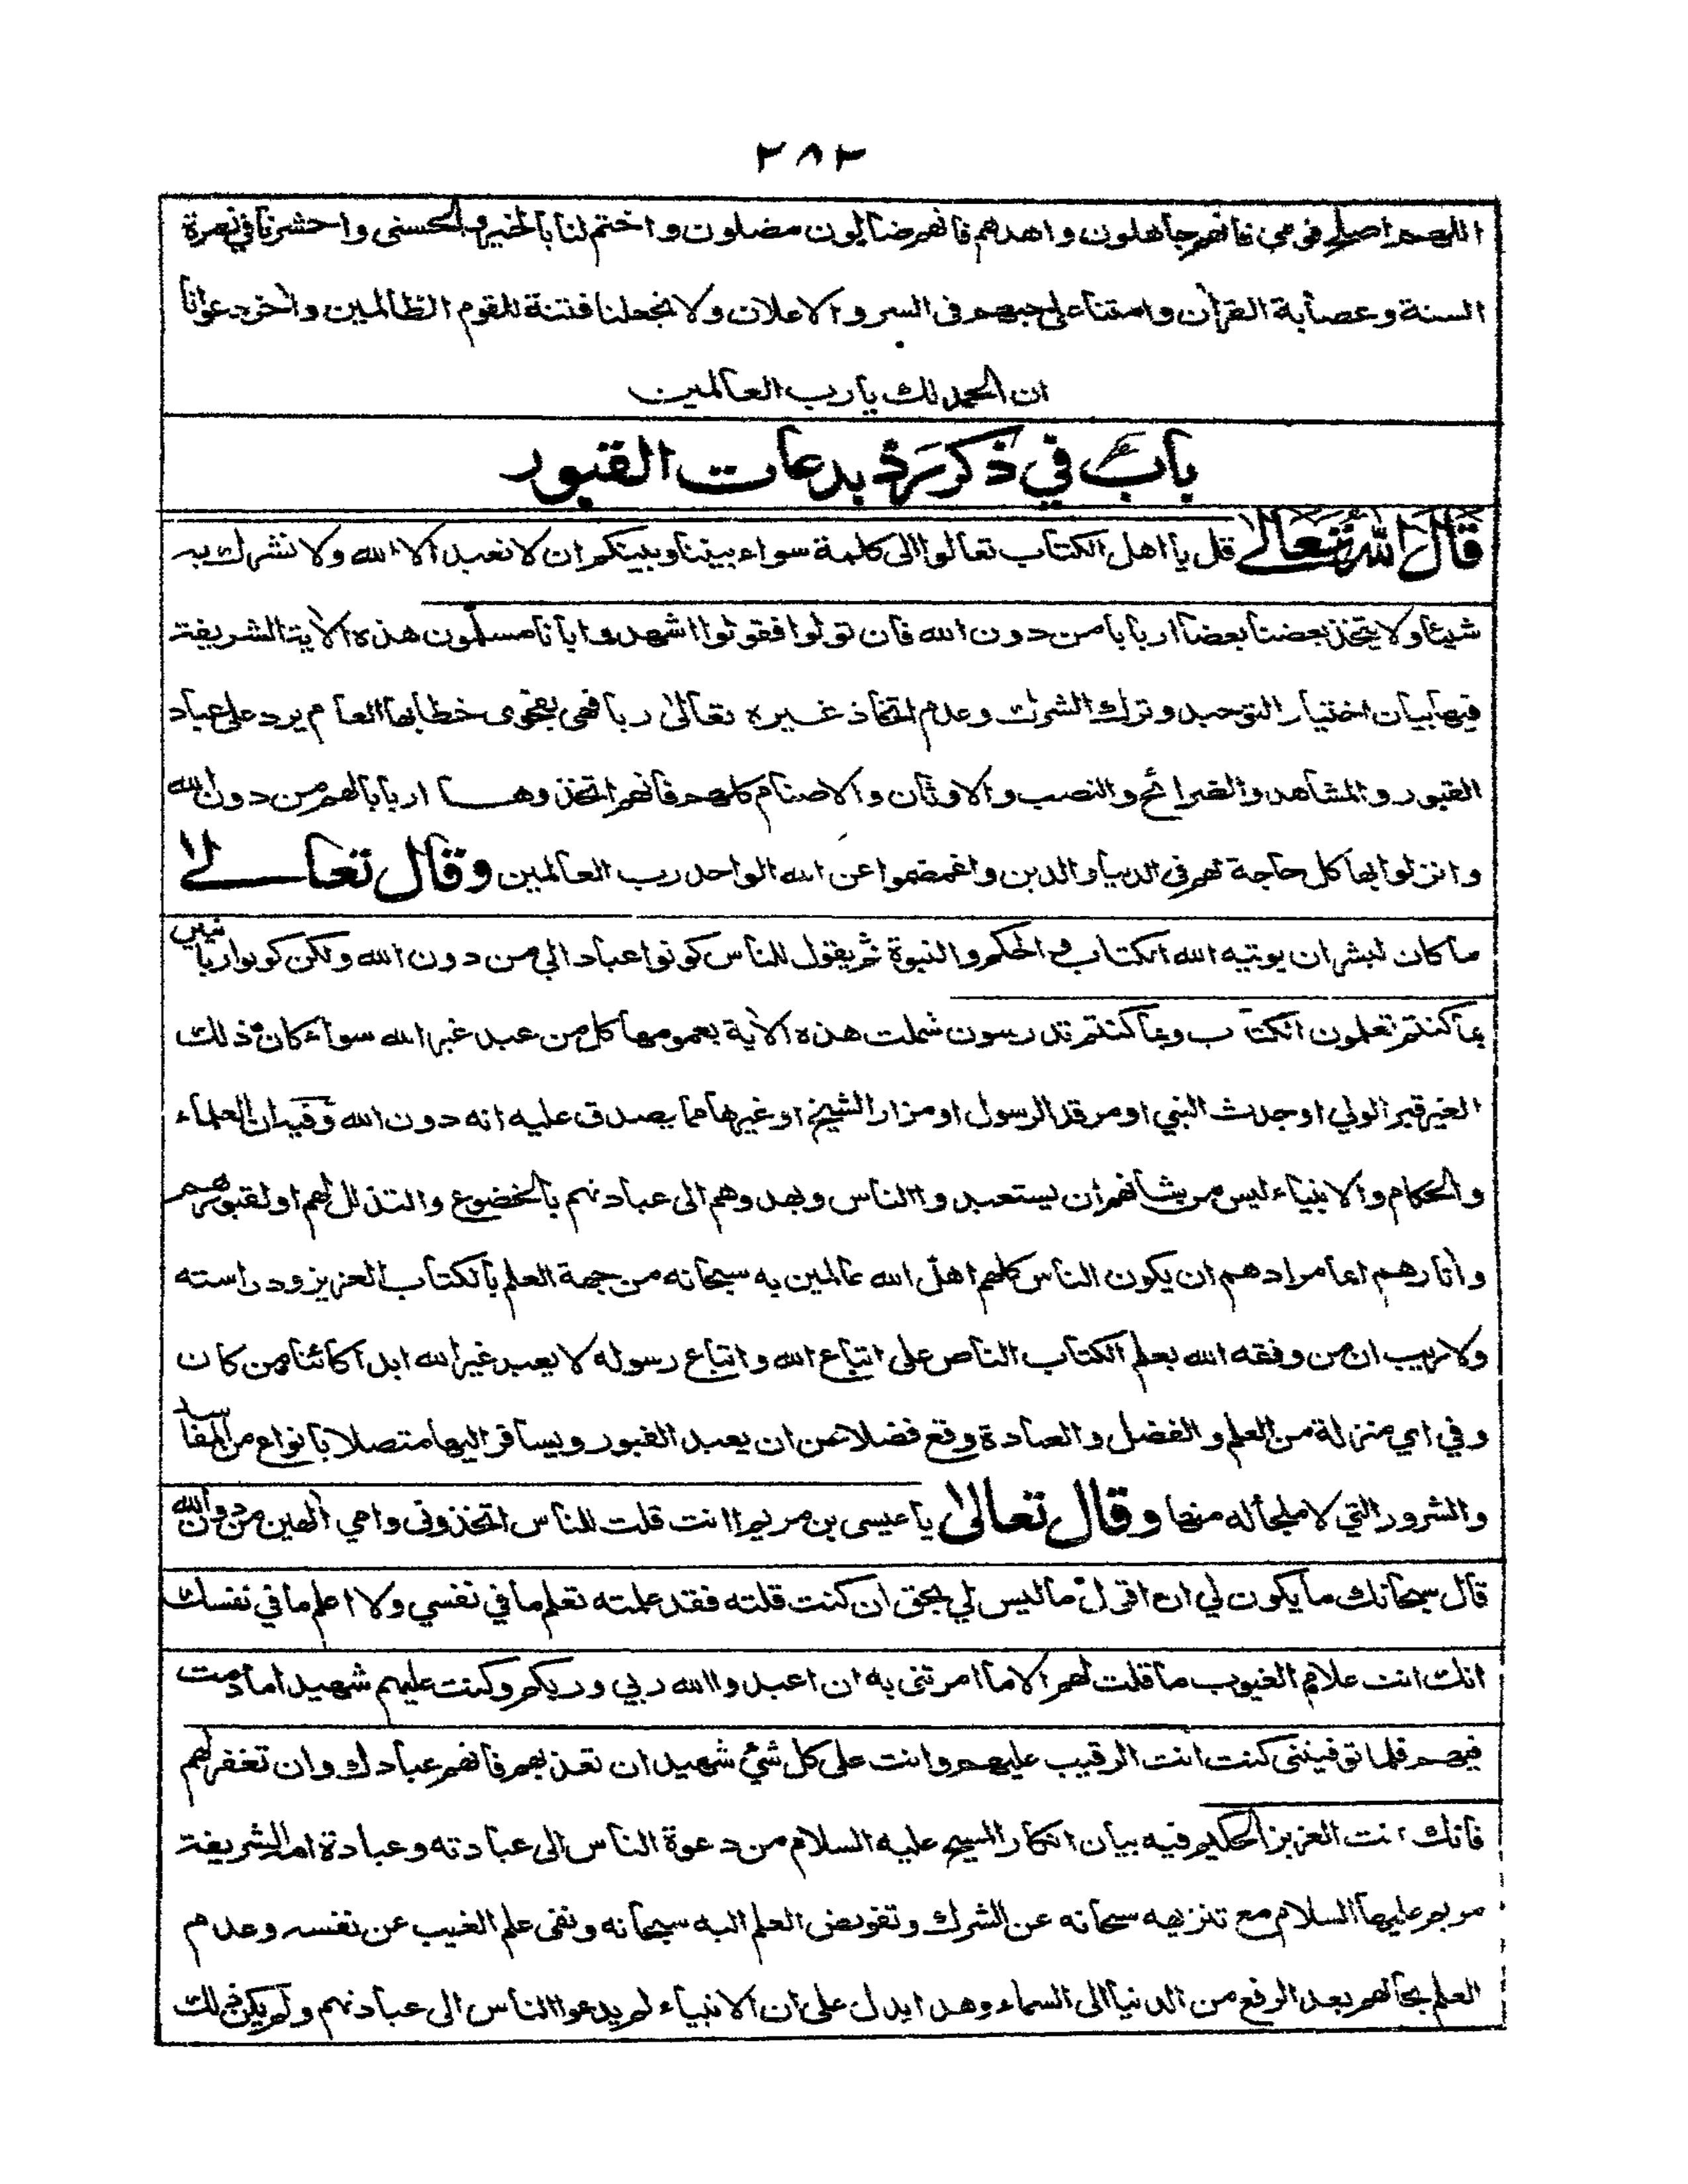 ٢٨٢
اللهم اصلح قومي فانهم جاهلون واهدهم فانهم ضالون مضلون واختم لنا بالخير والحسنى واحشرنا في نصرة
السنة وعصابة القرآن وامتنا على حبهم في السر والاعلان ولا تجعلنا فتنة للقوم الظالمين وآخر دعوانا
ان الحمد لك يا رب العالمين
باب في ذكر رد بدعات القبور
قال الله تعالى قل يا اهل الكتاب تعالوا الى كلمة سواء بيننا وبينكم ان لا نعبد الا الله ولا نشرك به
شيئا ولا يتخذ بعضنا بعضا اربابا من دون الله فان تولوا فقولوا اشهدوا بانا مسلمون هذه الآية الشريفة
فيها بيان اختيار التوحيد وترك الشرك وعدم اتخاذ غيره تعالى ربا فهي بفحوى خطابها العام يرد على عباد
القبور والمشاهد والضرائح والنصب والاوثان والاصنام كلهم فانهم اتخذوها اربابا لهم من دون الله
وانزلوا بها كل حاجة لهم في الدنيا والدين واغمضوا عن الله الواحد رب العالمين وقال تعالى
ما كان لبشر ان يوتيه الله الكتاب والحكم والنبوة ثم يقول للناس كونوا عبادا لي من دون الله ولكن كونوا ربانيين
بما كنتم تعلمون الكتاب وبما كنتم تدرسون شملت هذه الآية بعمومها كل من عبد غير الله سواء كان ذلك
الغير قبر الولي او جدث النبي او مرقد الرسول او مزار الشيخ او غيرها مما يصدق عليه انه دون الله وفيه ان العلماء
والحكام والانبياء ليس من شانهم ان يستعبدوا الناس ويهدوهم الى عبادتهم بالخضوع والتذلل لهم او لقبورهم
وآثارهم انما مرادهم ان يكون الناس كلهم اهل الله عالمين به سبحانه من جهة العلم بالكتاب العزيز ودراسته
ولا ريب ان من وفقه الله بعلم الكتاب الناص على اتباع الله واتباع رسوله لا يعبد غير الله ابدا كائنا من كان
وفي اي منزلة من العلم والفضل والعبادة وقع فضلا عن ان يعبد القبور ويسافر اليها متصلا بانواع من المفاسد
والشرور التي لا ملجأ له منها وقال تعالى يا عيسى بن مريم أانت قلت للناس اتخذوني وامي الهين من دون الله
قال سبحانك ما يكون لي ان اقول ما ليس لي بحق ان كنت قلته فقد علمته تعلم ما في نفسي ولا اعلم ما في نفسك
انك انت علام الغيوب ما قلت لهم الا ما امرتني به ان اعبدوا الله ربي وربكم وكنت عليهم شهيدا ما دمت
فيهم فلما توفيتني كنت انت الرقيب عليهم وانت على كل شئ شهيد ان تعذبهم فانهم عبادك وان تغفر لهم
فانك انت العزيز الحكيم فيه بيان انكار المسيح عليه السلام من دعوة الناس الى عبادته وعبادة امه الشريفة
مريم عليها السلام مع تنزيهه سبحانه عن الشرك وتفويض العلم اليه سبحانه ونفى علم الغيب عن نفسه وعدم
العلم بحالهم بعد الرفع من الدنيا الى السماء وهذا يدل على ان الانبياء لم يدعوا الناس الى عبادتهم ولم يكن ذلك